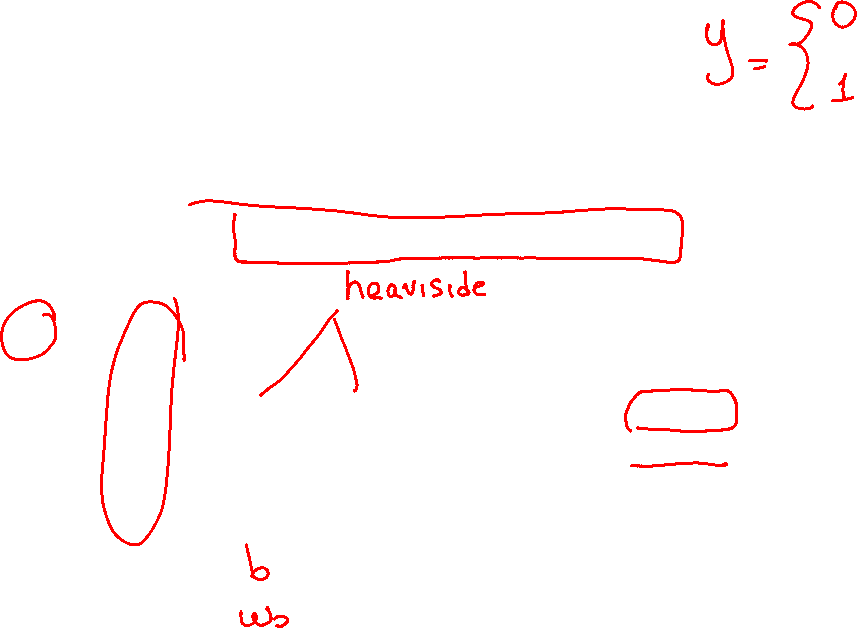 y = { 0
1
heaviside
b
ws